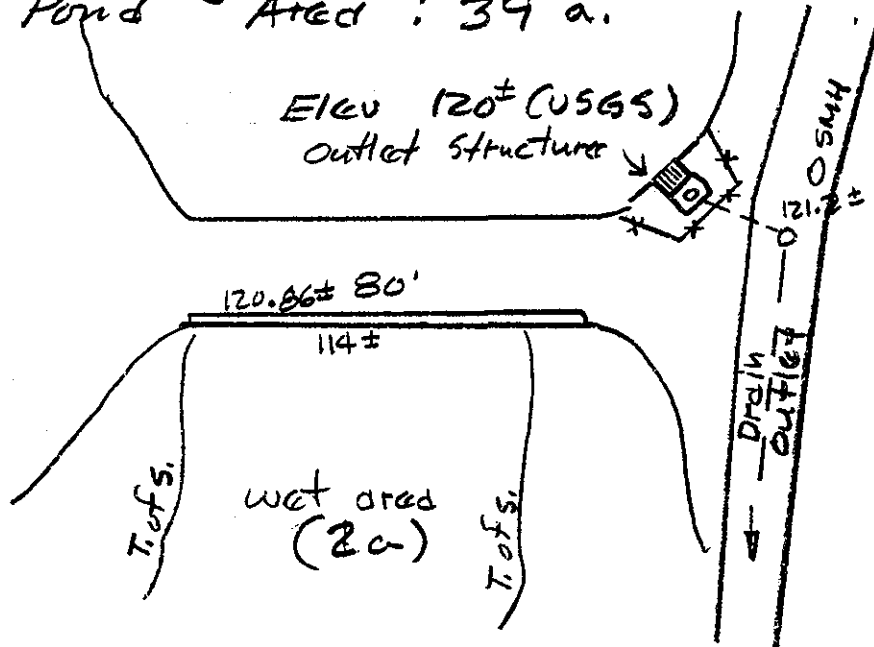 Pond Area : 34 a.
Elev 120± (USGS)
Outlet Structure
O SMH
121.2±
120.86± 80'
114±
Drain
Outlet
T. of S.
wet area
(2a)
T. of S.